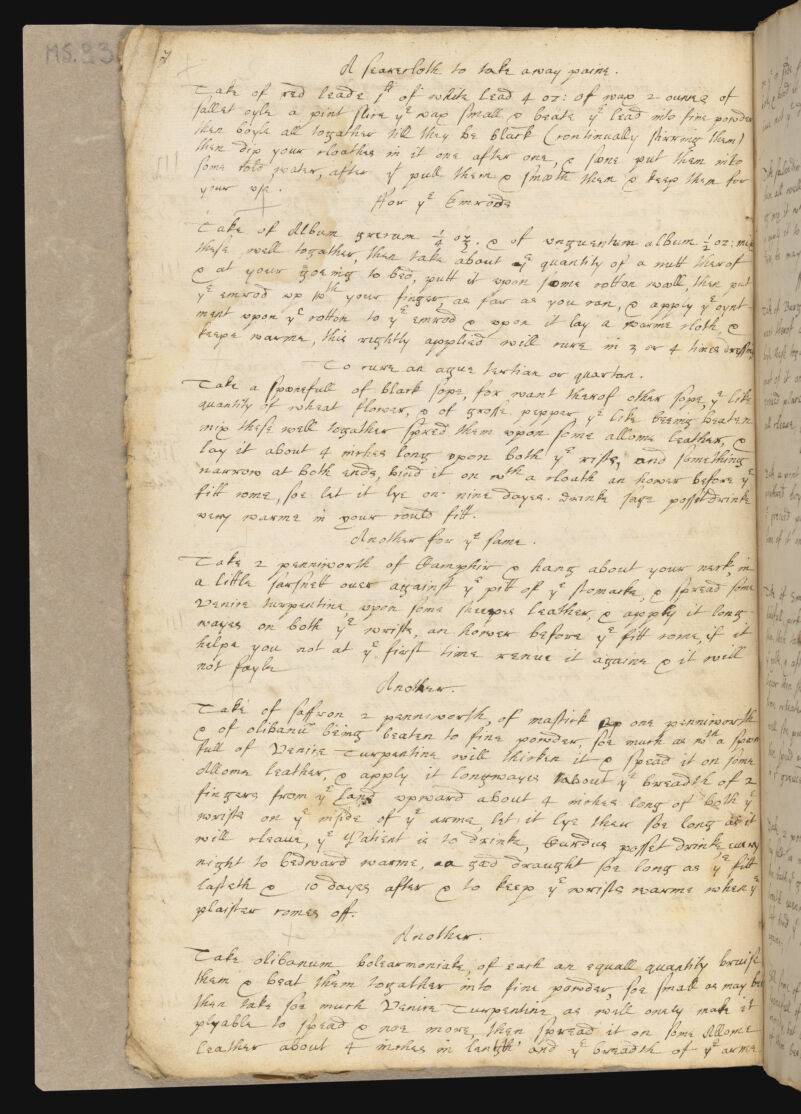 MS.93
A searcloth to take away paine.
Take of red leade of white lead 4 oz: of wax 2 ounces of
sallet oyle a pint slice yᵉ wax small & beate yᵉ lead into fine powder
then boyle all togather till they be black (continually stirring them)
then dip your cloathes in it one after one, & soone put them into
some cold water, after yᵗ pull them & smooth them & keep them for
your use.
For yᵉ Emrods
Take of Album grecum ¼ oz. & of unguentum album ½ oz: mix
these well togather, then take about yᵉ quantity of a nutt therof
& at your goeing to bed, putt it upon some cotton wooll, then put
yᵉ emrod up wᵗʰ your finger, as far as you can, & apply yᵉ oynt-
ment upon yᵉ cotton to yᵉ emrod & upon it lay a warme cloth, &
keepe warme, this rightly applied will cure in 3 or 4 times dressing
To cure an ague tertian or quartan.
Take a spoonefull of black sope, for want therof other sope, yᵉ like
quantity of wheat flower, & of grosse pepper, yᵉ like beeing beaten
mix these well togather spred them upon some allome leather, &
lay it about 4 inches long upon both yᵉ rists, and something
narrow at both ends, bind it on wᵗʰ a cloath an hower before yᵉ
fitt come, soe let it lye on nine dayes. drinke sage posset drinke
very warme in your could fitt.
Another for yᵉ same.
Take 2 penniworth of Camphir & hang about your neck, in
a little sarsnett over against yᵉ pitt of yᵉ stomacke, & spread some
Venice turpentine upon some sheepes leather, & apply it long-
wayes on both yᵉ wrists, an hower before yᵉ fitt come, if it
helpe you not at yᵉ first time renue it againe & it will
not fayle
Another.
Take of saffron 2 penniworth, of mastick one penniworth
& of olibanū being beaten to fine powder, soe much as wᵗʰ a spoon
full of Venice Turpentine will thicken it & spead it on some
Allome leather, & apply it longwayes about yᵉ breadth of 2
fingers from yᵉ hand upward about 4 inches long of both yᵉ
wrists on yᵉ inside of yᵉ arme, let it lye ther soe long as it
will cleave, yᵉ Patient is to drinke, Cardus posset drinke every
night to bedward warme, a good draught soe long as yᵉ fitt
lasteth & 10 dayes after & to keep yᵉ wrists warme when yᵉ
plaister comes off.
Another.
Take olibanum bolearmoniake, of each an equall quantity bruise
them & beat them togather into fine powder, soe small as may be
then take soe much Venice Turpentine as will onely make it
plyable to spead & noe more, then spread it on some Allome
leather about 4 inches in length and yᵉ breadth of yᵉ arme